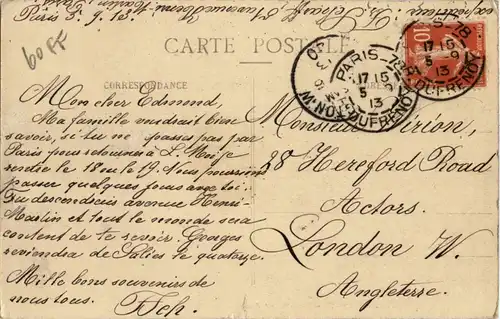 Paris 5.9.13.
60 FF
CARTE POSTALE
CORRESPONDANCE
Mon cher Edmond,
Ma famille voudrait bien
savoir, si tu ne passes pas par
Paris pour retourner à L. Mr je
rendre le 18 ou le 19. Nous pourrions
passer quelques jours avec toi.
Tu descendrais avenue Henri-
Martin et tout le monde sera
content de te revoir. Georges
reviendra de Salies le quatorze.
Mille bons souvenirs de
nous tous.
PARIS
17 15
5 9
13
R. DUFRENOY
PARIS
17 15
5 9
13
R. DUFRENOY
10
Monsieur Sirion,
38 Hereford Road
Actors.
London W.
Angleterre.